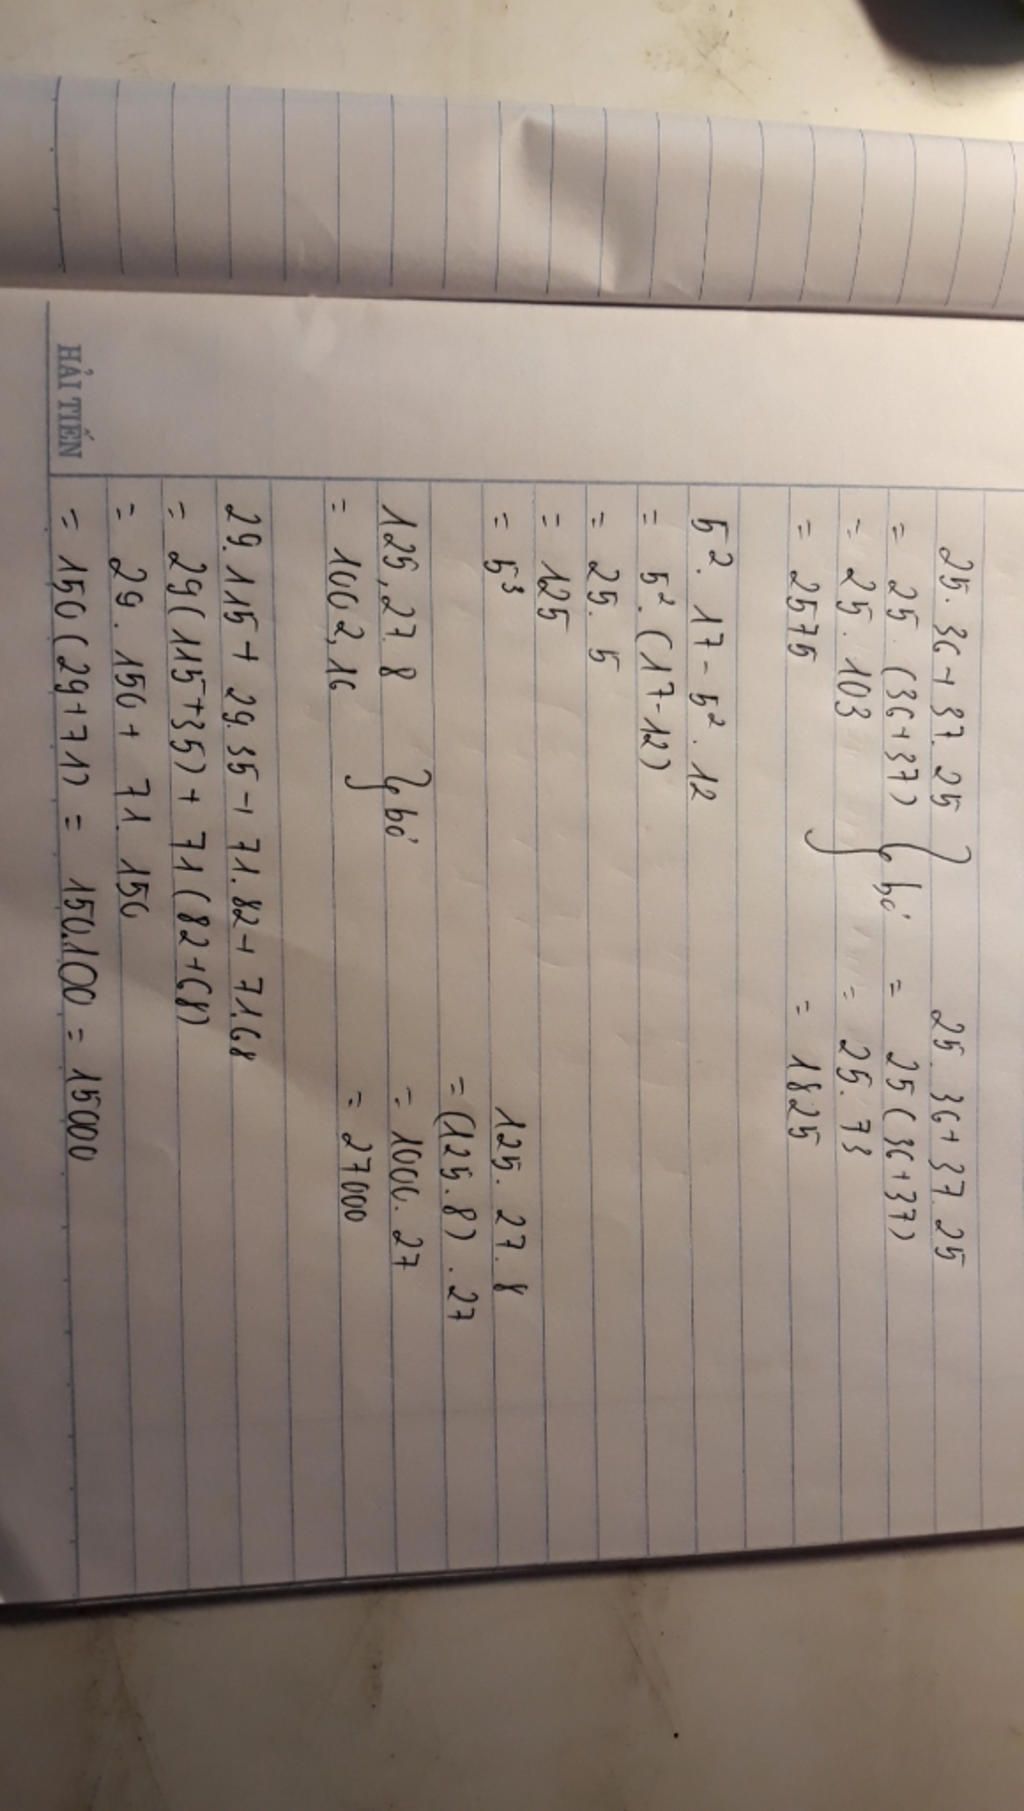 25. 36 + 37. 25 } bỏ
= 25. (36+37)
= 25. 103
= 2575
25. 36 + 37. 25
= 25 (36+37)
= 25. 73
= 1825
5². 17 - 5². 12
= 5². (17-12)
= 25. 5
= 125
= 5³
125, 27. 8 } bỏ
= 1002, 16
125. 27. 8
= (125. 8) . 27
= 1000. 27
= 27000
29. 115 + 29. 35 + 71. 82 + 71. 68
= 29 (115+35) + 71 (82+68)
= 29. 150 + 71. 150
= 150 (29+71) = 150.100 = 15000
HẢI TIẾN